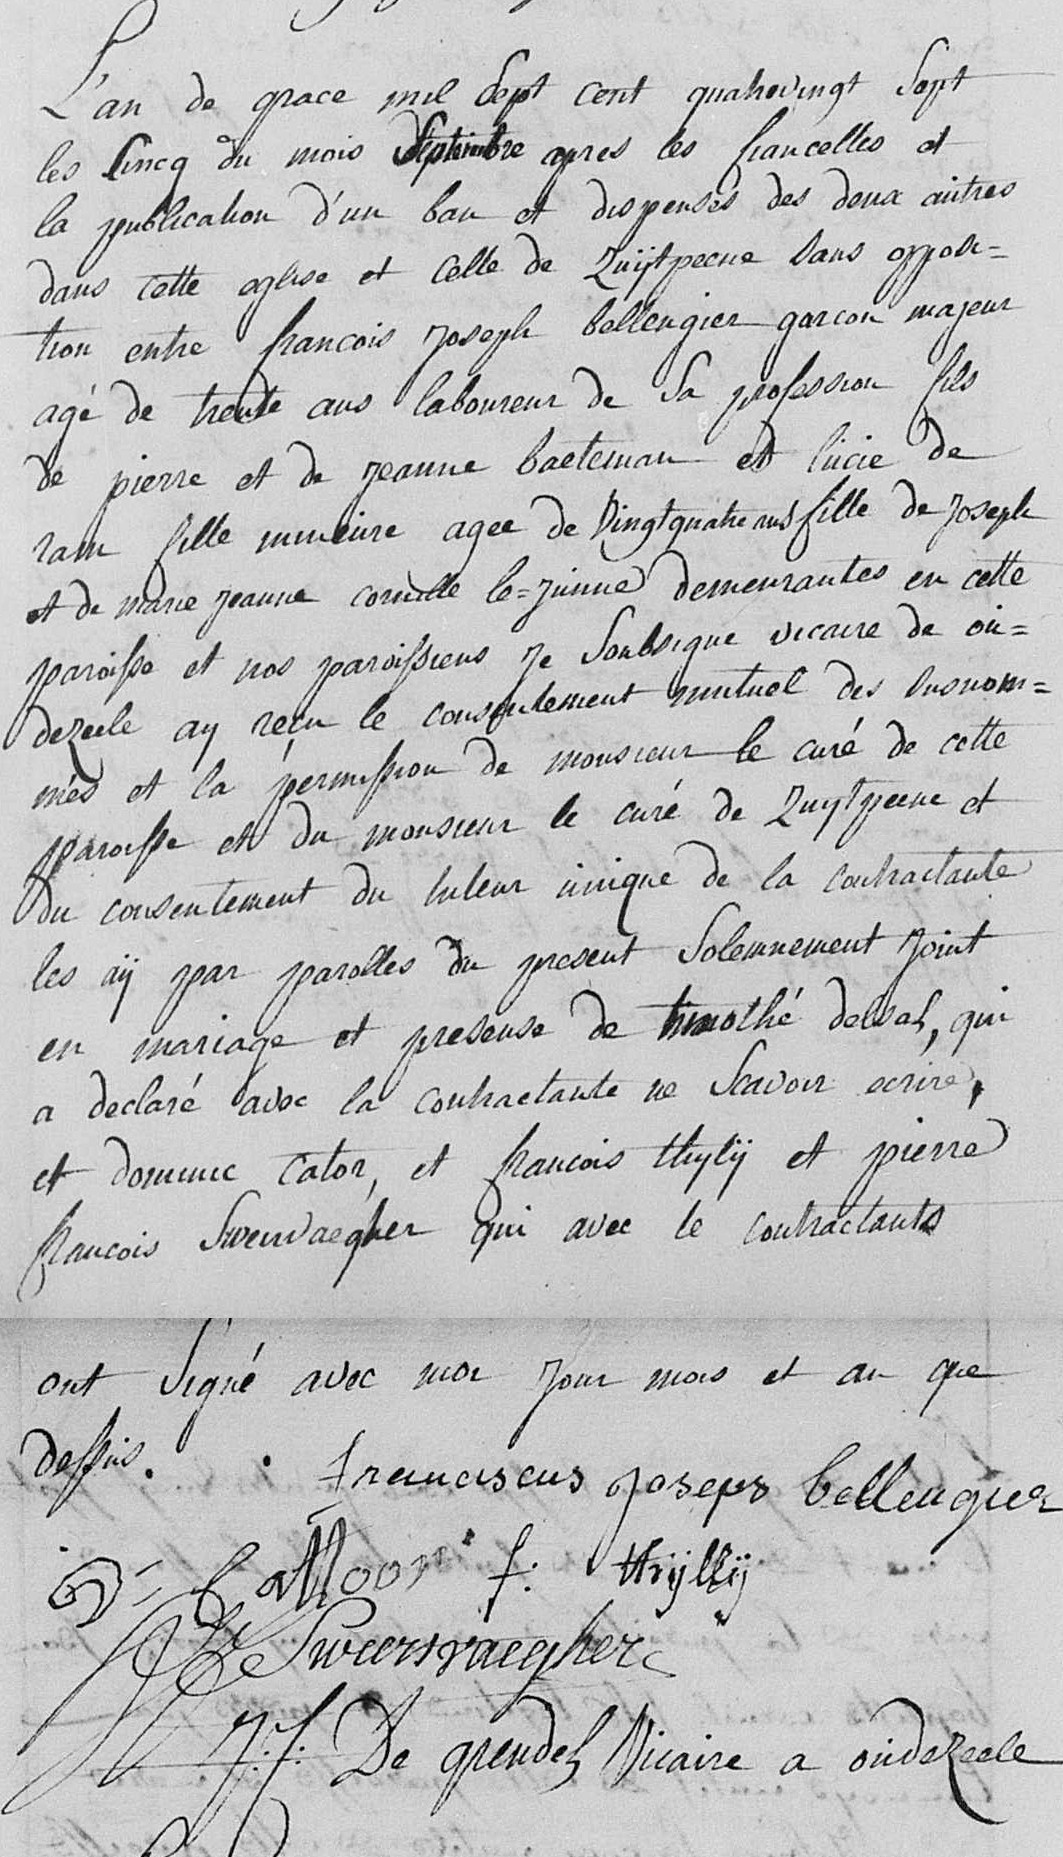 L'an de grace mil Sept cent quatrevingt Sept
les Cincq du mois Septembre apres les fiancelles et
la publication d'un ban et dispensés des deux autres
dans cette eglise et celle de Zuijtpeene sans opposi=
tion entre francois Joseph bellengier garcon majeur
agé de trente ans laboureur de Sa profession fils
de pierre et de jeanne baeteman et lucie de
ram fille mineure agee de Vingtquatre ans fille de Joseph
et de marie jeanne cornille le=jeune demeurantes en cette
paroisse et nos paroissiens Je Soubsigne vicaire de ou=
dezeele ay reçu le consentement mutuel des susnom=
més et la permission de monsieur le curé de cette
paroisse et du monsieur le curé de Zuytpeene et
du consentement du tuteur unique de la contractante
les aÿ par parolles du present Solemnement joint
en mariage et presense de timothé delsal, qui
a declaré avec la contractante ne Scavoir ecrire,
et dominic Cator, et francois thylÿ et pierre
francois Sweervaegher qui avec le contractants
ont Signé avec moi jour mois et an que
dessus. franciscus joseps bellengier
D: Cattoor f: thÿllÿ
Sweervaegher
J: f: De grendel Vicaire a oudezeele